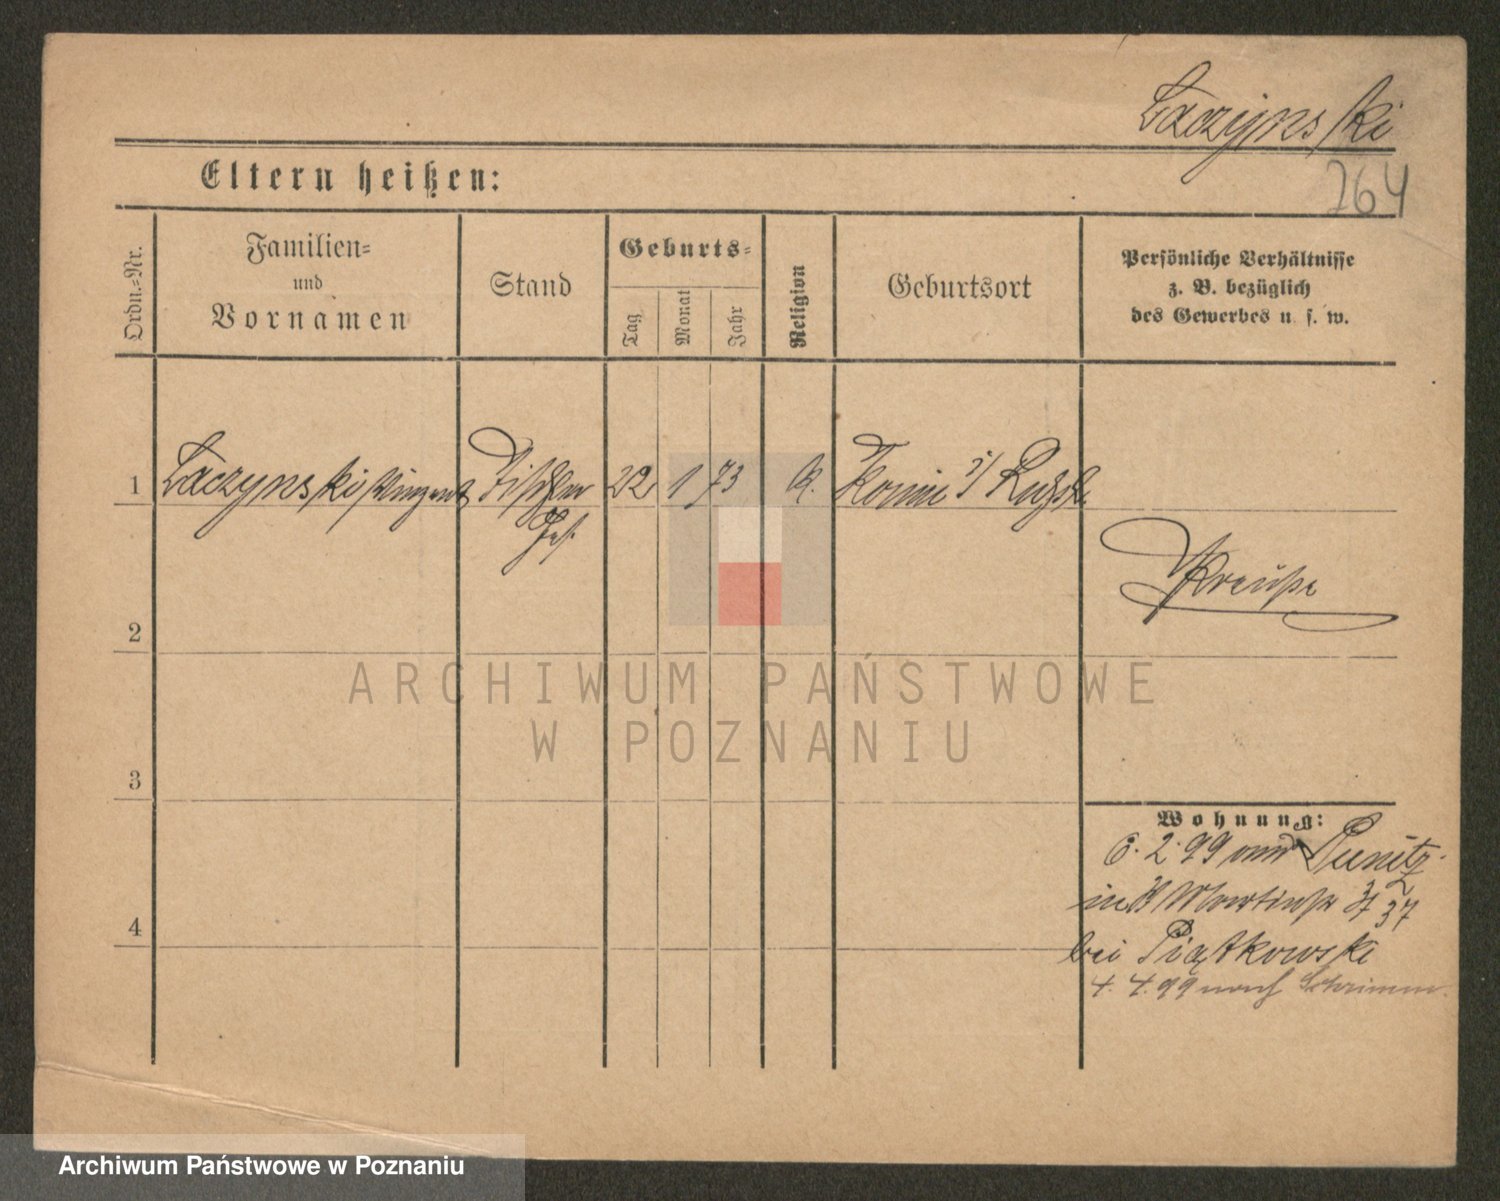 Łaczynski
264
Eltern heißen:
Ordn.-Nr.
Familien-
und
Vornamen
Stand
Geburts-
Tag
Monat
Jahr
Religion
Geburtsort
Persönliche Verhältnisse
z. B. bezüglich
des Gewerbes u. s. w.
1 Łaczynski Vinzent Tischler 22 1 73 K. Konin i/ Rußl.
Ges.
Preuße
2
3
4
Wohnung:
6. 2. 99 aus Punitz
in St Martinstr 37
bei Piątkowski
4. 4. 99 nach Schrimm.
ARCHIWUM PAŃSTWOWE
W POZNANIU
Archiwum Państwowe w Poznaniu